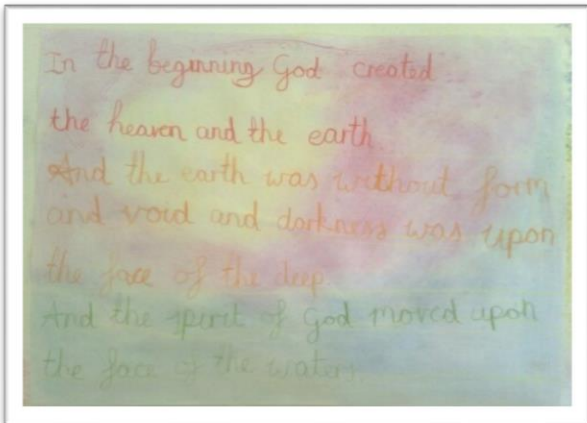 In the beginning God created
the heaven and the earth.
And the earth was without form
and void and darkness was upon
the face of the deep
And the spirit of God moved upon
the face of the waters.